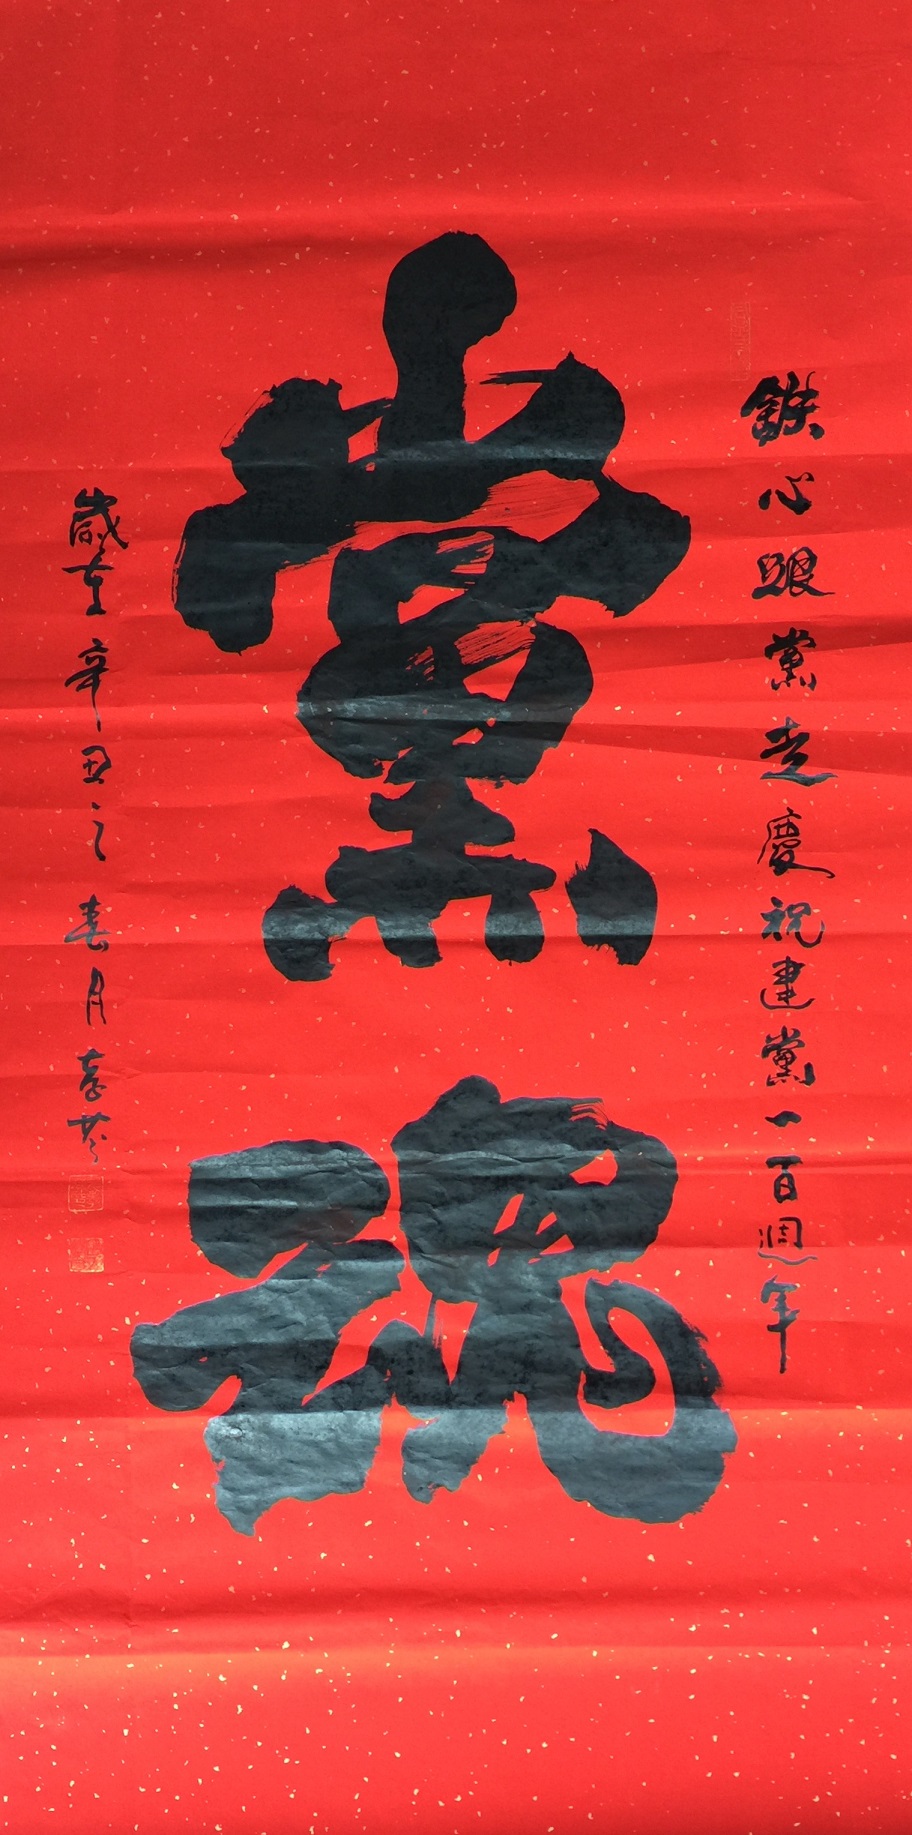 鐵心跟黨走慶祝建黨一百週年
黨魂
歲在辛丑之春月